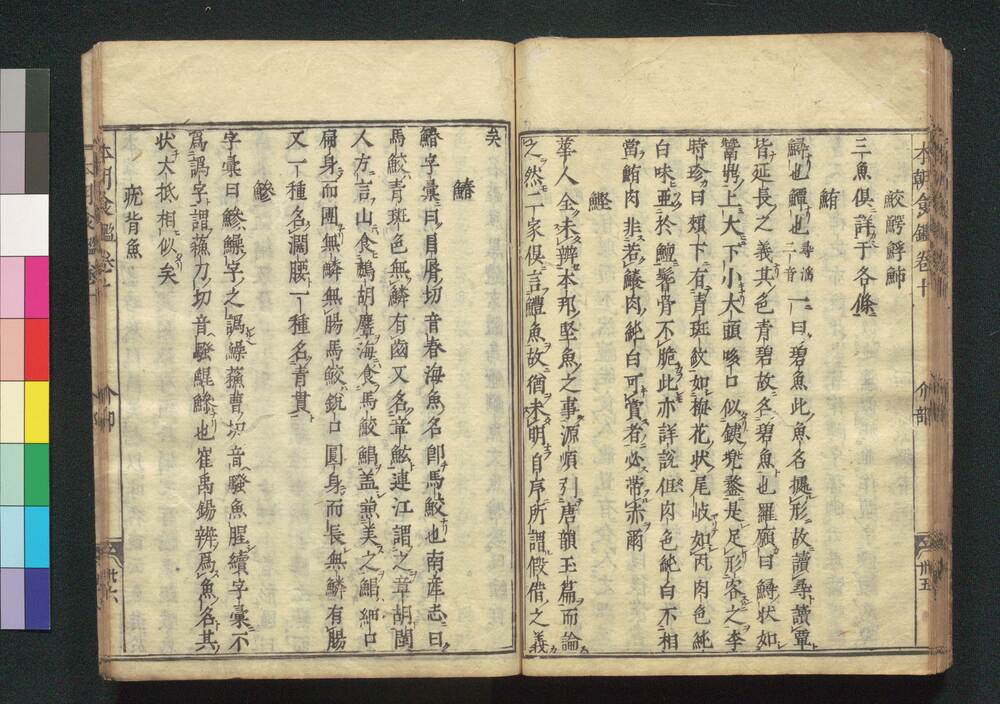 本朝食鑑卷十
介部
卅五
鮫鰐鰾鮄
三魚俱詳于各條
鮪
鱘也鱏也尋淫二音一曰碧魚此魚名據形故讀尋讀覃
皆延長之義其色青碧故名碧魚也羅願曰鱘狀如
鬵鼎上大下小大頭哆口似鐵兜鍪是足形容之李
時珍曰頰下有青斑紋如梅花狀尾岐如丙肉色純
白味亞於鱣鬐骨不脆此亦詳說但肉色純白不相
當鮪肉非若鱶肉純白可賞者必帶赤爾
鰹
華人全未辨本邦堅魚之事源順引唐韻玉篇而論
之然二家俱言鱧魚故猶未明自序所謂假借之義
矣
䲠
䲠字彙曰員脣切音春海魚名即馬鮫也南產志曰
馬鮫青斑色無鱗有齒又名章鮌連江謂之章胡閩
人方言山食鷓胡麞海食馬鮫鯧盖兼美之鯧細口
扁身而團無鱗無腸馬鮫銳口圓身而長無鱗有腸
又一種名濶腰一種名青貫
鰺
字彙曰鰺鱢字之譌鱢蘓曹切音騷魚腥續字彙不
爲譌字謂蘓刀切音騷鯤鰺也崔禹錫辨爲魚名其
狀大抵相似矣
䟽背魚
本朝食鑑卷十
介部
卅六